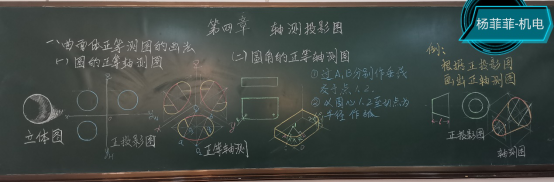 杨菲菲-机电
第四章 轴测投影图
一、曲面体正等测图的画法
(一) 圆的正等轴测图
(二) 圆角的正等轴测图
① 过A、B分别作垂线
交于点1、2。
② 以圆心1、2至切点为
半径作弧
例:
根据正投影图
画出正轴测图
立体图
正投影图
正等轴测
正投影图
轴测图